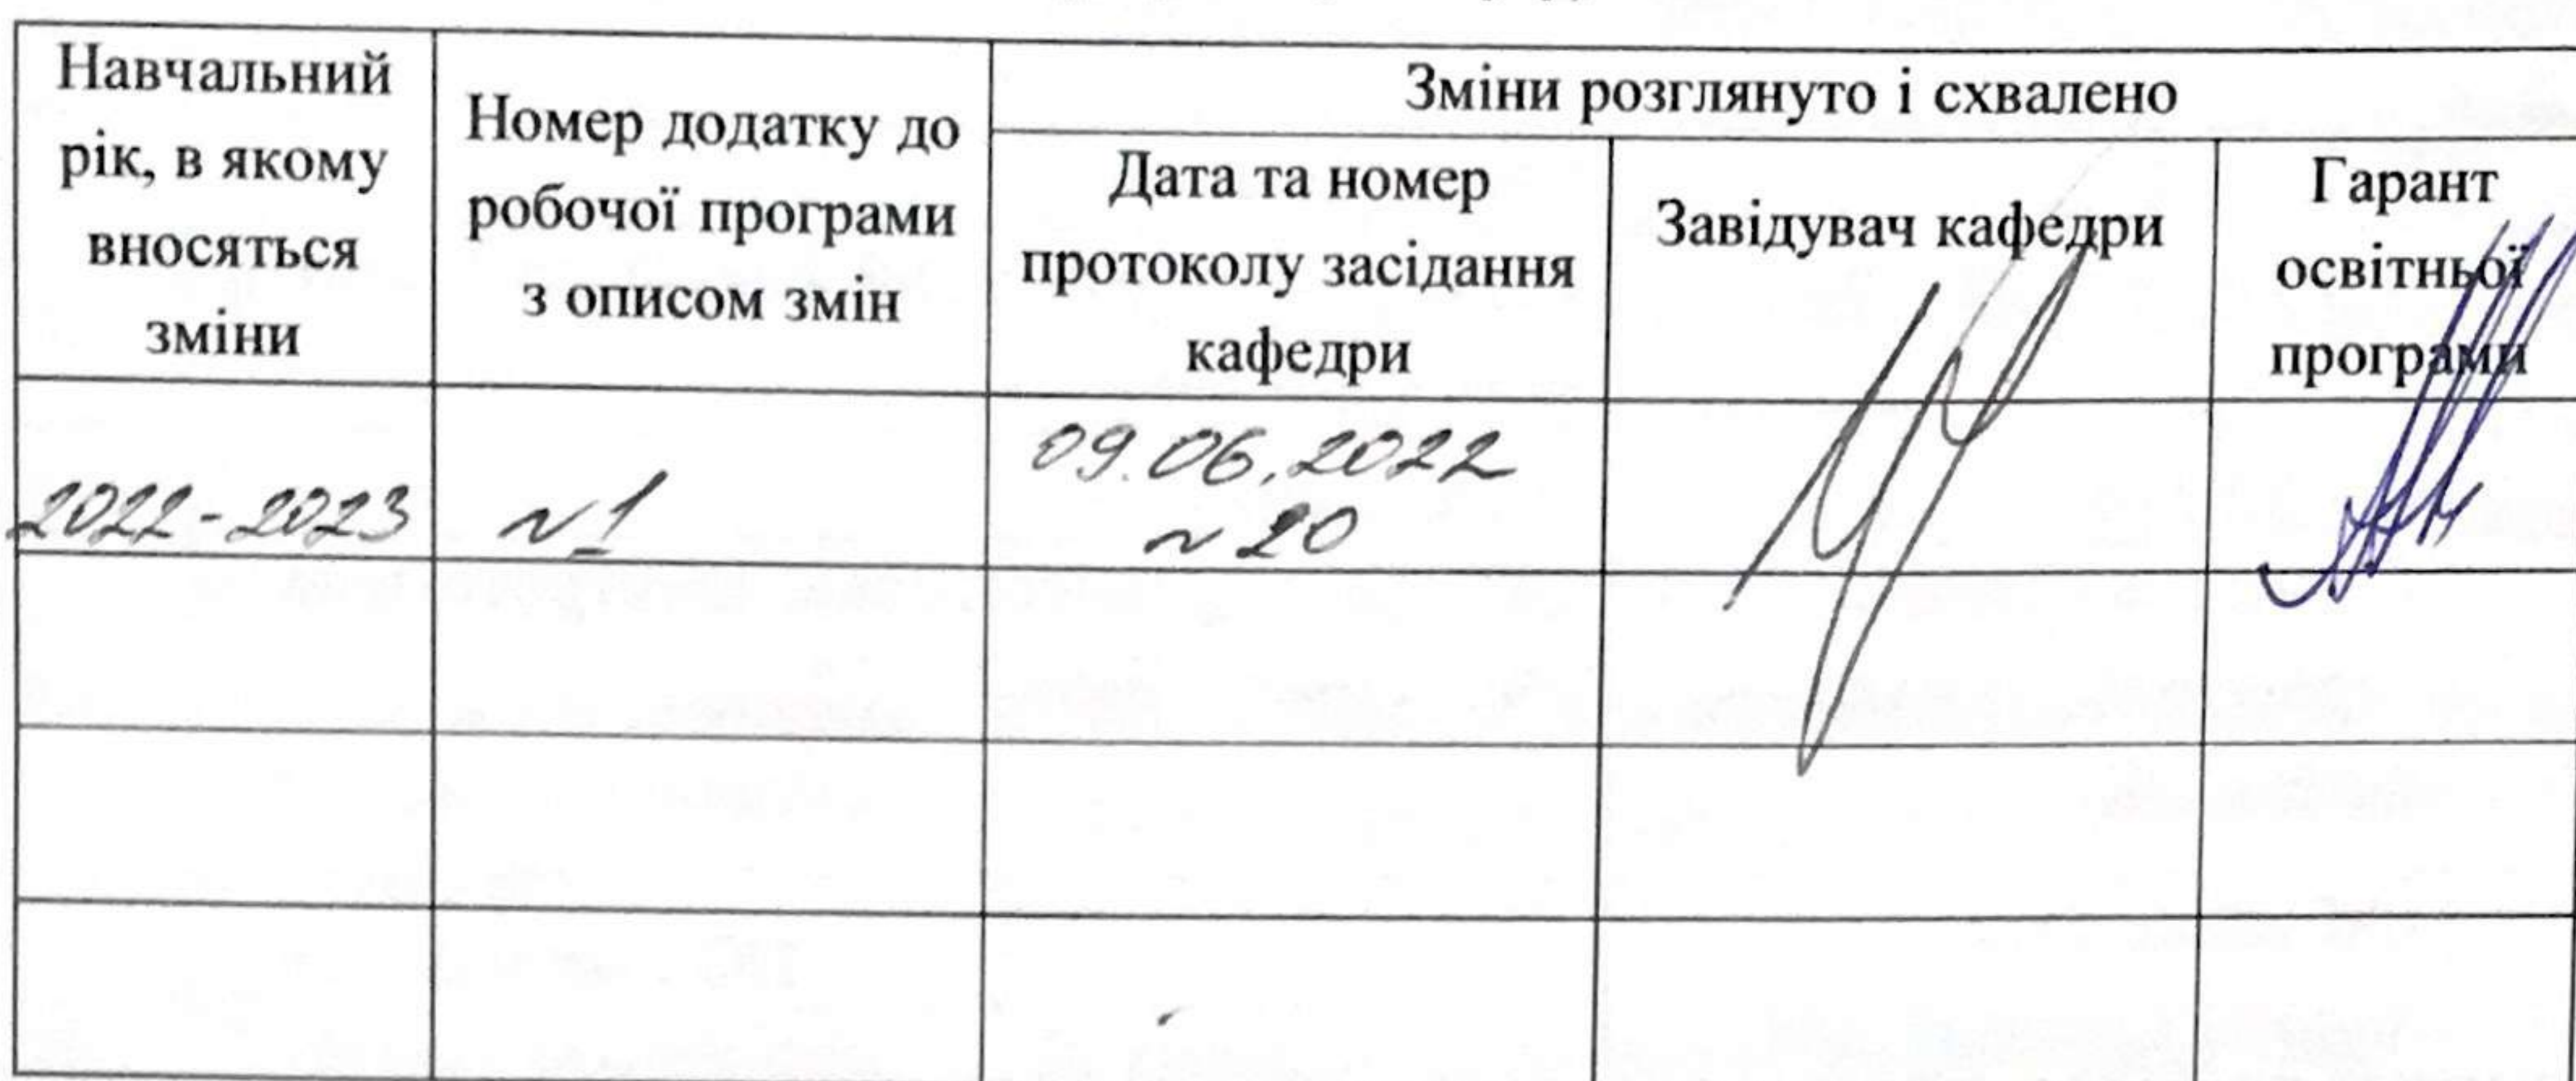 Навчальний
рік, в якому
вносяться
зміни
Номер додатку до
робочої програми
з описом змін
Зміни розглянуто і схвалено
Дата та номер
протоколу засідання
кафедри
Завідувач кафедри
Гарант
освітньої
програми
2022-2023
№1
09.06.2022
№20